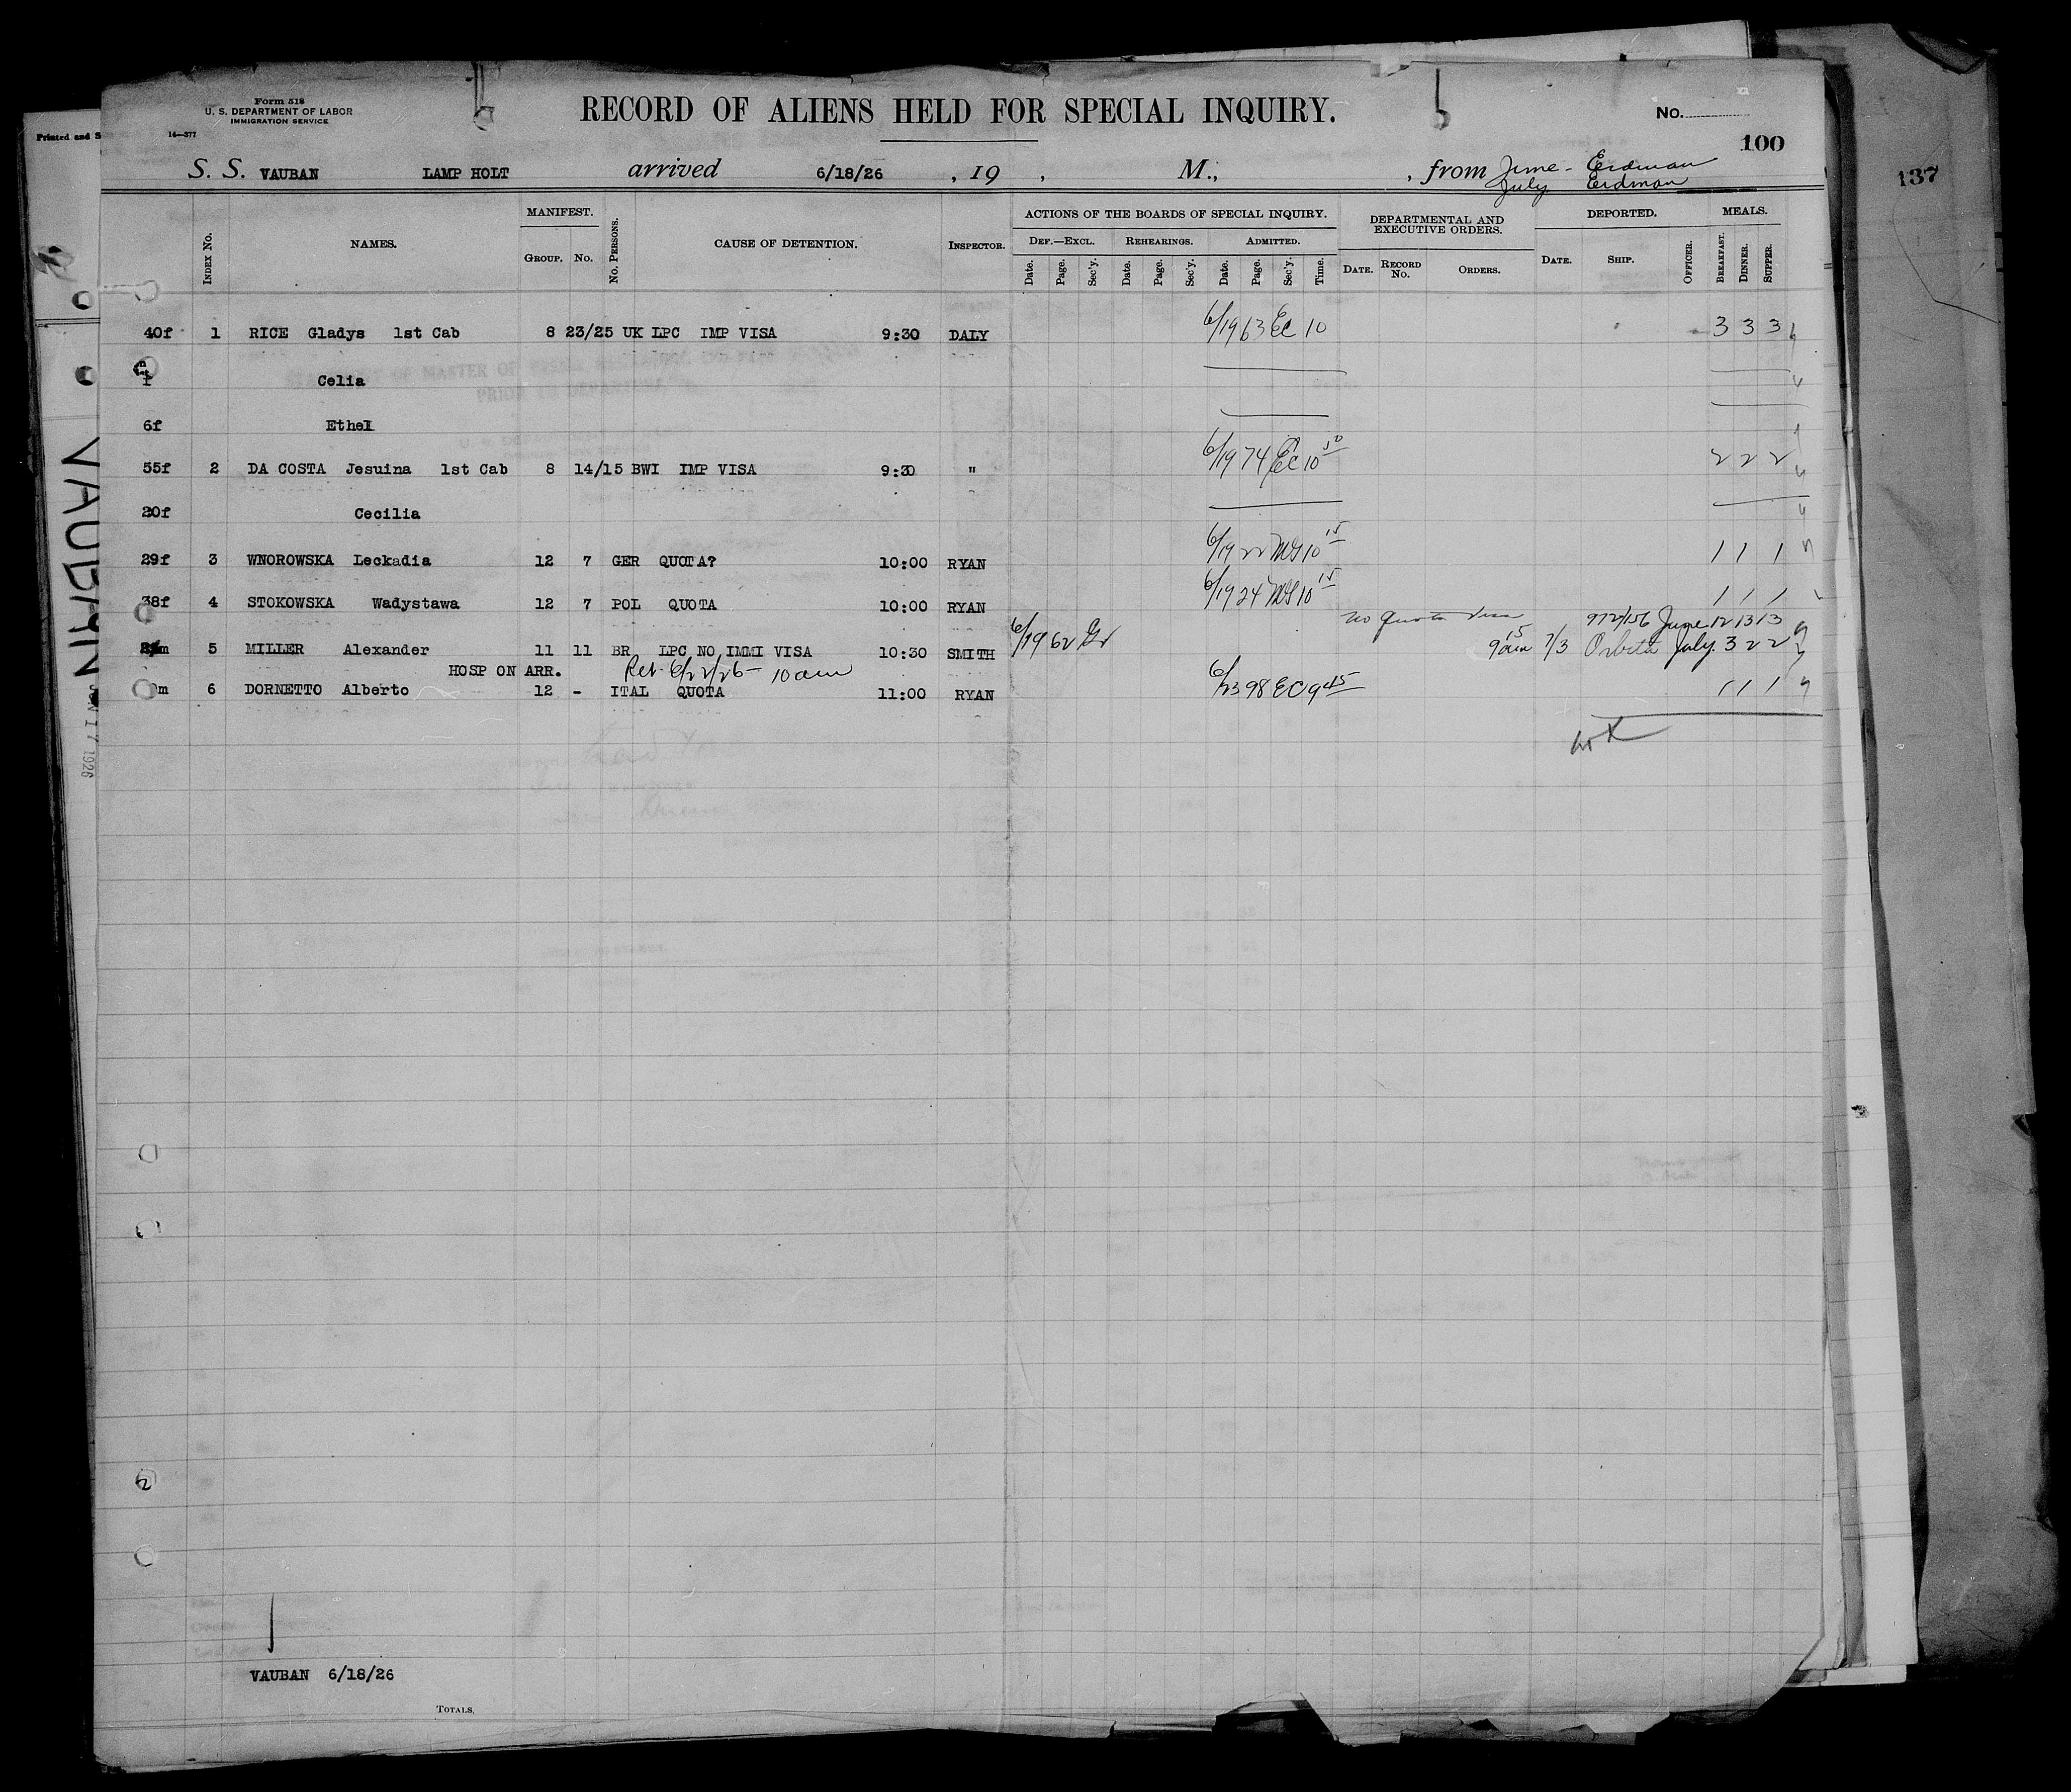 Form 518
U. S. DEPARTMENT OF LABOR
IMMIGRATION SERVICE
14—377
RECORD OF ALIENS HELD FOR SPECIAL INQUIRY.
No.
100
Printed and S
137
S. S. VAUBAN LAMP HOLT arrived 6/18/26 , 19 , M., , from June - Erdman
July Erdman
INDEX NO. NAMES. MANIFEST. GROUP. NO. NO. PERSONS. CAUSE OF DETENTION. INSPECTOR. ACTIONS OF THE BOARDS OF SPECIAL INQUIRY. DEPARTMENTAL AND EXECUTIVE ORDERS. DEPORTED. MEALS.
DEF.—EXCL. REHEARINGS. ADMITTED.
Date. Page. Sec'y. Date. Page. Sec'y. Date. Page. Sec'y. Time. DATE. RECORD NO. ORDERS. DATE. SHIP. OFFICER. BREAKFAST. DINNER. SUPPER.
40f 1 RICE Gladys 1st Cab 8 23/25 UK LPC IMP VISA 9:30 DALY 6/19 63 EC 10 3 3 3
Celia
6f Ethel
55f 2 DA COSTA Jesuina 1st Cab 8 14/15 BWI IMP VISA 9:30 " 6/19 74 EC 10 2 2 2
20f Cecilia
29f 3 WNOROWSKA Leckadia 12 7 GER QUOTA? 10:00 RYAN 6/19 22 MG 10 15 1 1 1
38f 4 STOKOWSKA Wadystawa 12 7 POL QUOTA 10:00 RYAN 6/19 24 MG 10 15 1 1 1
no quota visa 972/156 June 12 13 13
m 5 MILLER Alexander 11 11 BR LPC NO IMMI VISA 10:30 SMITH 6/19 62 9 15 am 7/3 Orbita July. 3 2 2
HOSP ON ARR. Ret. 6/22/26 - 10 am
m 6 DORNETTO Alberto 12 - ITAL QUOTA 11:00 RYAN 6/23 98 EC 9 45 1 1 1
VAUBAN
N 17 1926
VAUBAN 6/18/26
TOTALS,